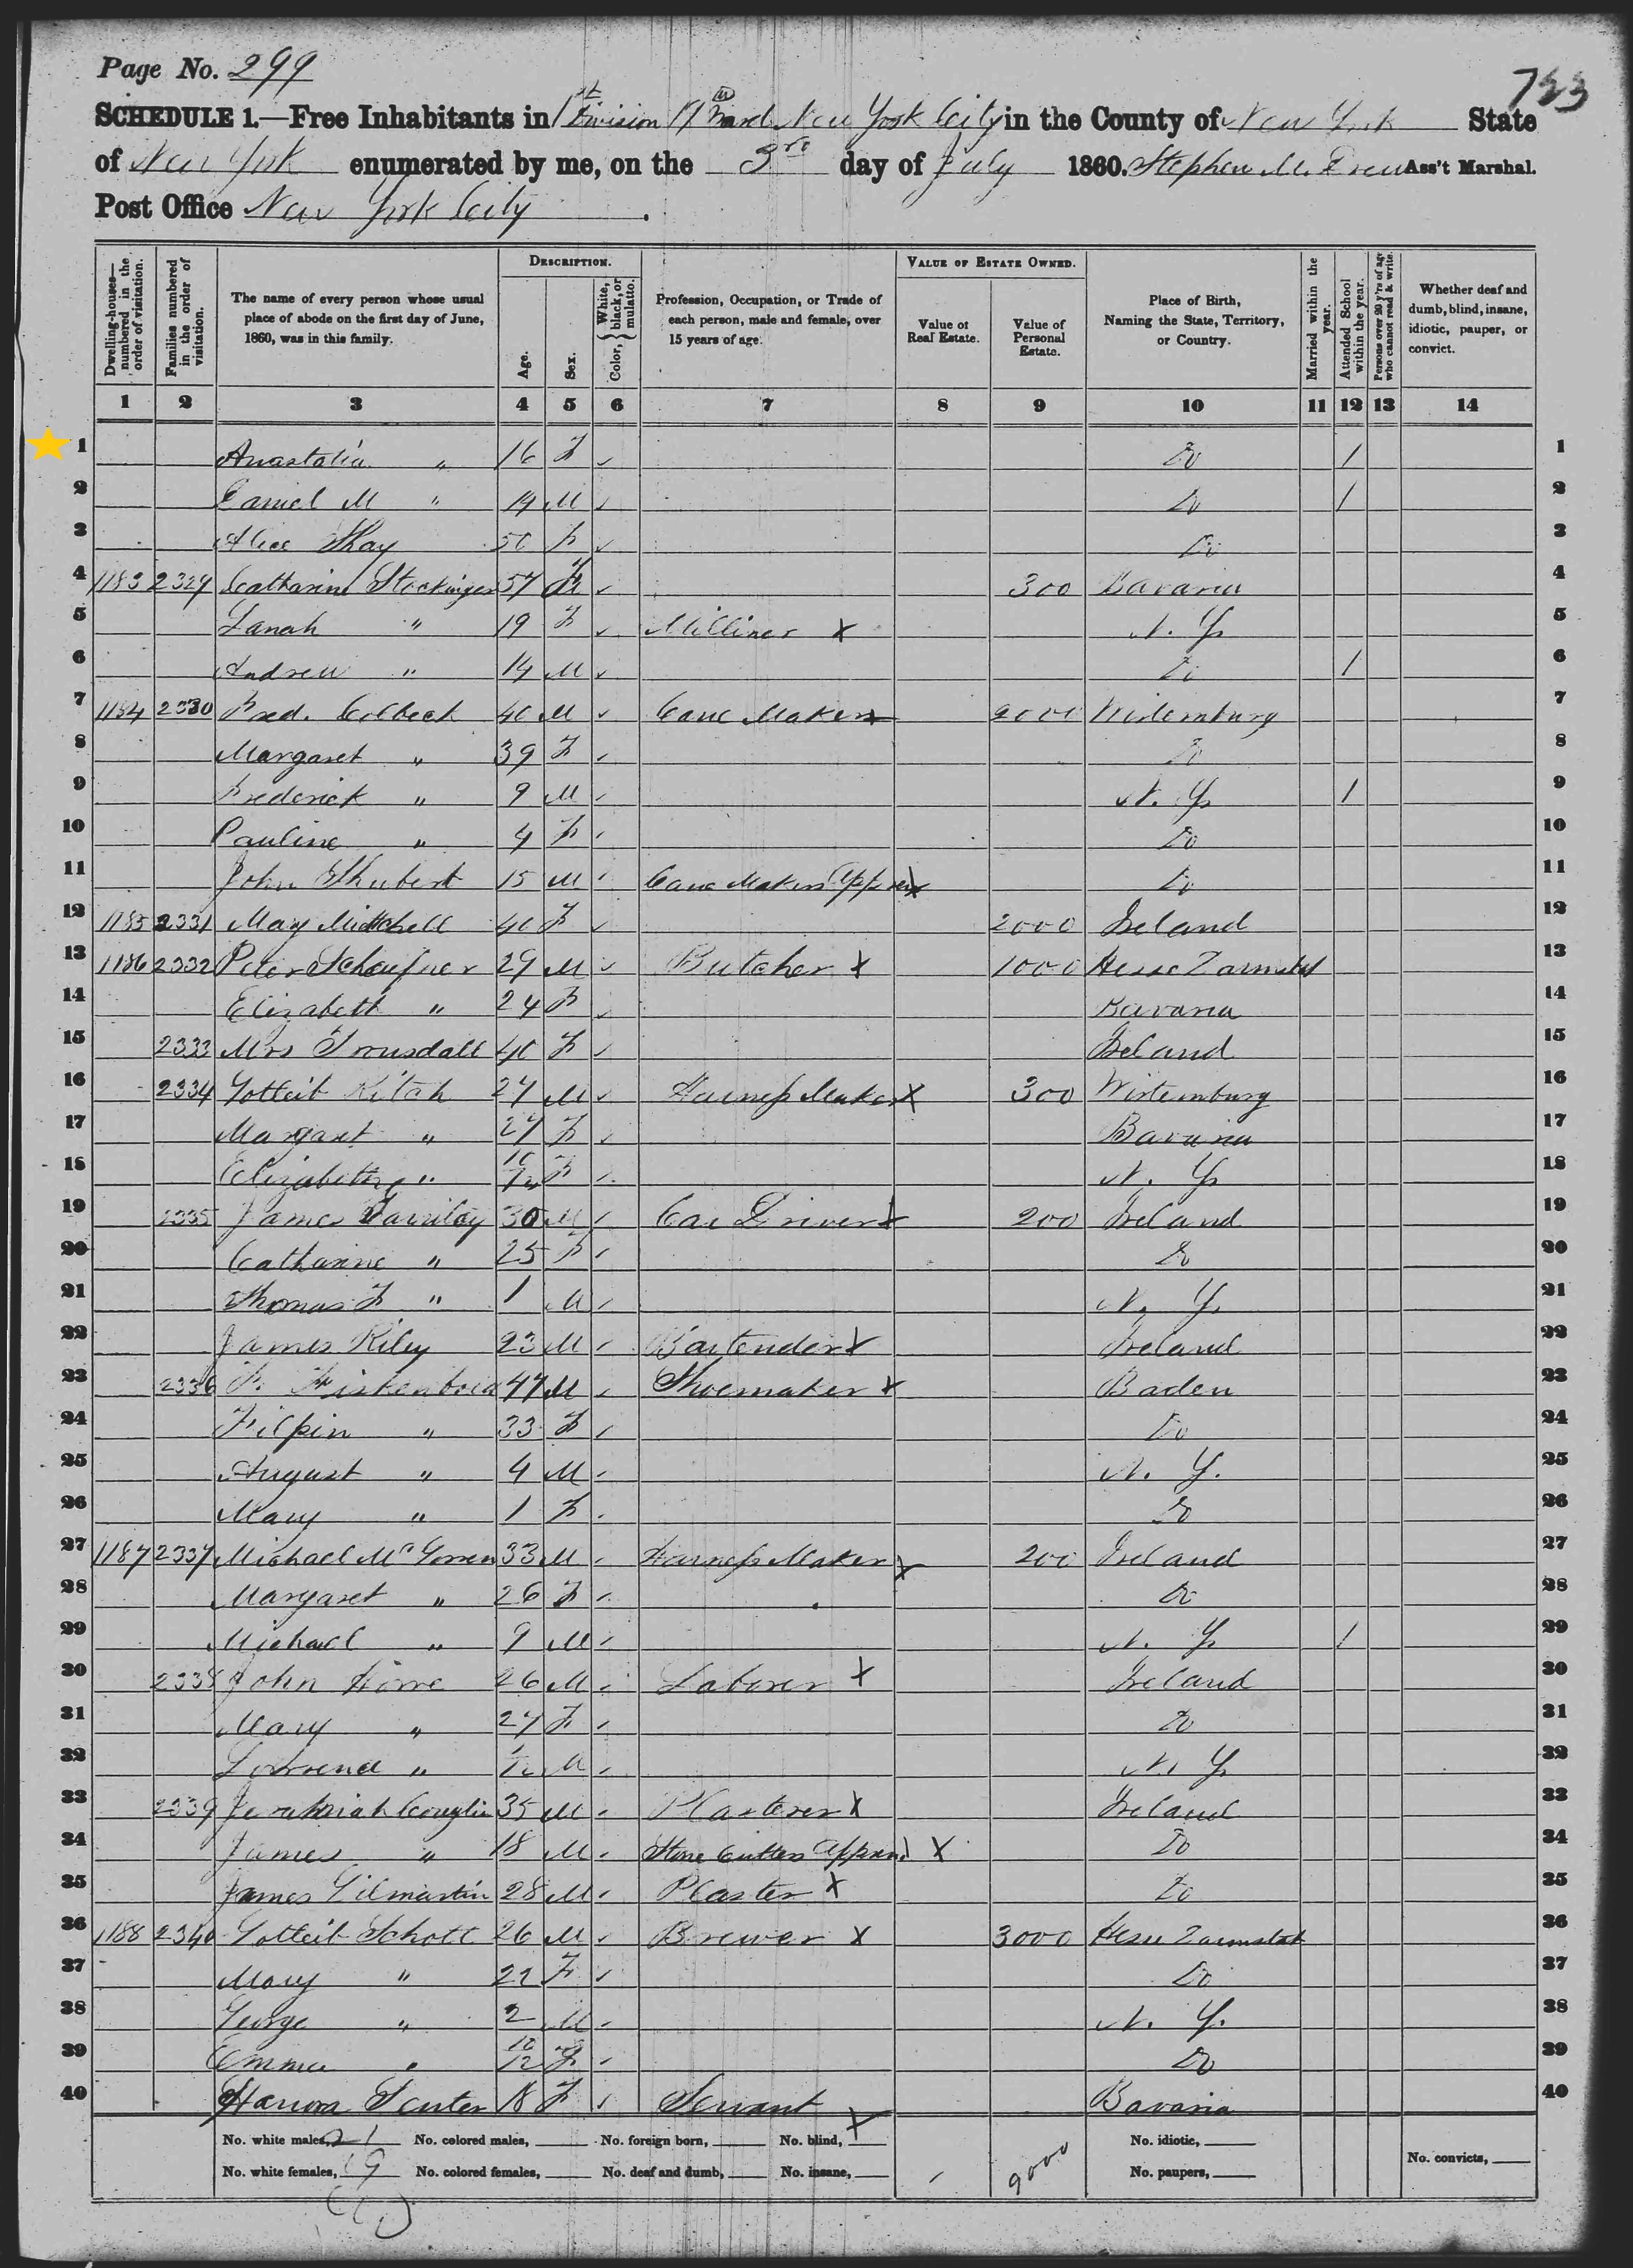 Page No. 299
733
SCHEDULE 1.—Free Inhabitants in 1st Division 19 Ward New York City in the County of New York State
of New York enumerated by me, on the 3rd day of July 1860. Stephen M. Drew Ass't Marshal.
Post Office New York City.
Dwelling-houses— numbered in the order of visitation.
Families numbered in the order of visitation.
The name of every person whose usual place of abode on the first day of June, 1860, was in this family.
DESCRIPTION.
Age.
Sex.
Color, { White, black, or mulatto.
Profession, Occupation, or Trade of each person, male and female, over 15 years of age.
VALUE OF ESTATE OWNED.
Value of Real Estate.
Value of Personal Estate.
Place of Birth, Naming the State, Territory, or Country.
Married within the year.
Attended School within the year.
Persons over 20 y'rs of age who cannot read & write.
Whether deaf and dumb, blind, insane, idiotic, pauper, or convict.
1 2 3 4 5 6 7 8 9 10 11 12 13 14
1 Anastatia " 16 F Do / 1
2 Daniel M " 14 M Do / 2
3 Alice Shay 50 F Do 3
4 1183 2329 Catharine Stockinger 57 F 300 Bavaria 4
5 Lanah " 19 F Milliner X N. Y. 5
6 Andrew " 14 M Do / 6
7 1184 2330 Fred. Colbeck 40 M Cane Maker X 2000 Wirtemburg 7
8 Margaret " 39 F Do 8
9 Frederick " 9 M N. Y. / 9
10 Pauline " 4 F Do 10
11 John Shubert 15 M Cane Maker Appren X Do 11
12 1185 2331 Mary Mitchell 40 F 2000 Ireland 12
13 1186 2332 Peter Schaufner 29 M Butcher X 1000 Hesse Darmstat 13
14 Elizabeth " 24 F Bavaria 14
15 2333 Mrs Trousdall 40 F Ireland 15
16 2334 Gotleib Kitah 27 M Harness Maker X 300 Wirtemburg 16
17 Margaret " 27 F Bavaria 17
18 Elizabeth " 10/12 F N. Y. 18
19 2335 James Farrilay 30 M Car Driver X 200 Ireland 19
20 Catharine " 25 F Do 20
21 Thomas F " 1 M N. Y. 21
22 James Riley 23 M Bartender X Ireland 22
23 2336 F. 47 M Shoemaker X Baden 23
24 Filpin " 33 F Do 24
25 August " 4 M N. Y. 25
26 Mary " 1 F Do 26
27 1187 2337 Michael McGovren 33 M Harness Maker X 200 Ireland 27
28 Margaret " 26 F Do 28
29 Michael " 9 M N. Y. / 29
30 2338 John Howe 26 M Laborer X Ireland 30
31 Mary " 27 F Do 31
32 " M N. Y. 32
33 2339 Jeramiah Couglin 35 M Plasterer X Ireland 33
34 James " 18 M Stone Cutter Apprend X Do 34
35 James Gilmartin 28 M Plaster X Do 35
36 1188 2340 Gotleib Schott 26 M Brewer X 3000 Hesse Darmstat 36
37 Mary " 22 F Do 37
38 George " 2 M N. Y. 38
39 Emma " 10/12 F Do 39
40 Senter 18 F Servant X Bavaria 40
No. white males, 21 No. colored males, No. foreign born, No. blind, No. idiotic,
No. white females, 19 No. colored females, No. deaf and dumb, No. insane, 9000 No. paupers, No. convicts,